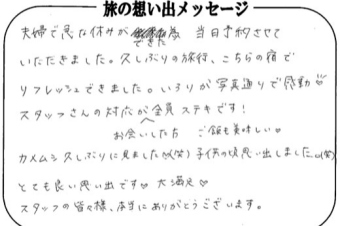 旅の想い出メッセージ
夫婦で急な休みができた 当日予約させて
いただきました。久しぶりの旅行、こちらの宿で
リフレッシュできました。いろりが写真通りで感動♡
スタッフさんの対応が全員ステキです！
お会いした方 ご飯も美味しい♡
カメムシ久しぶりに見ました(笑)子供の頃思い出しました(笑)
とても良い思い出です♡ 大満足♡
スタッフの皆々様、本当にありがとうございます。